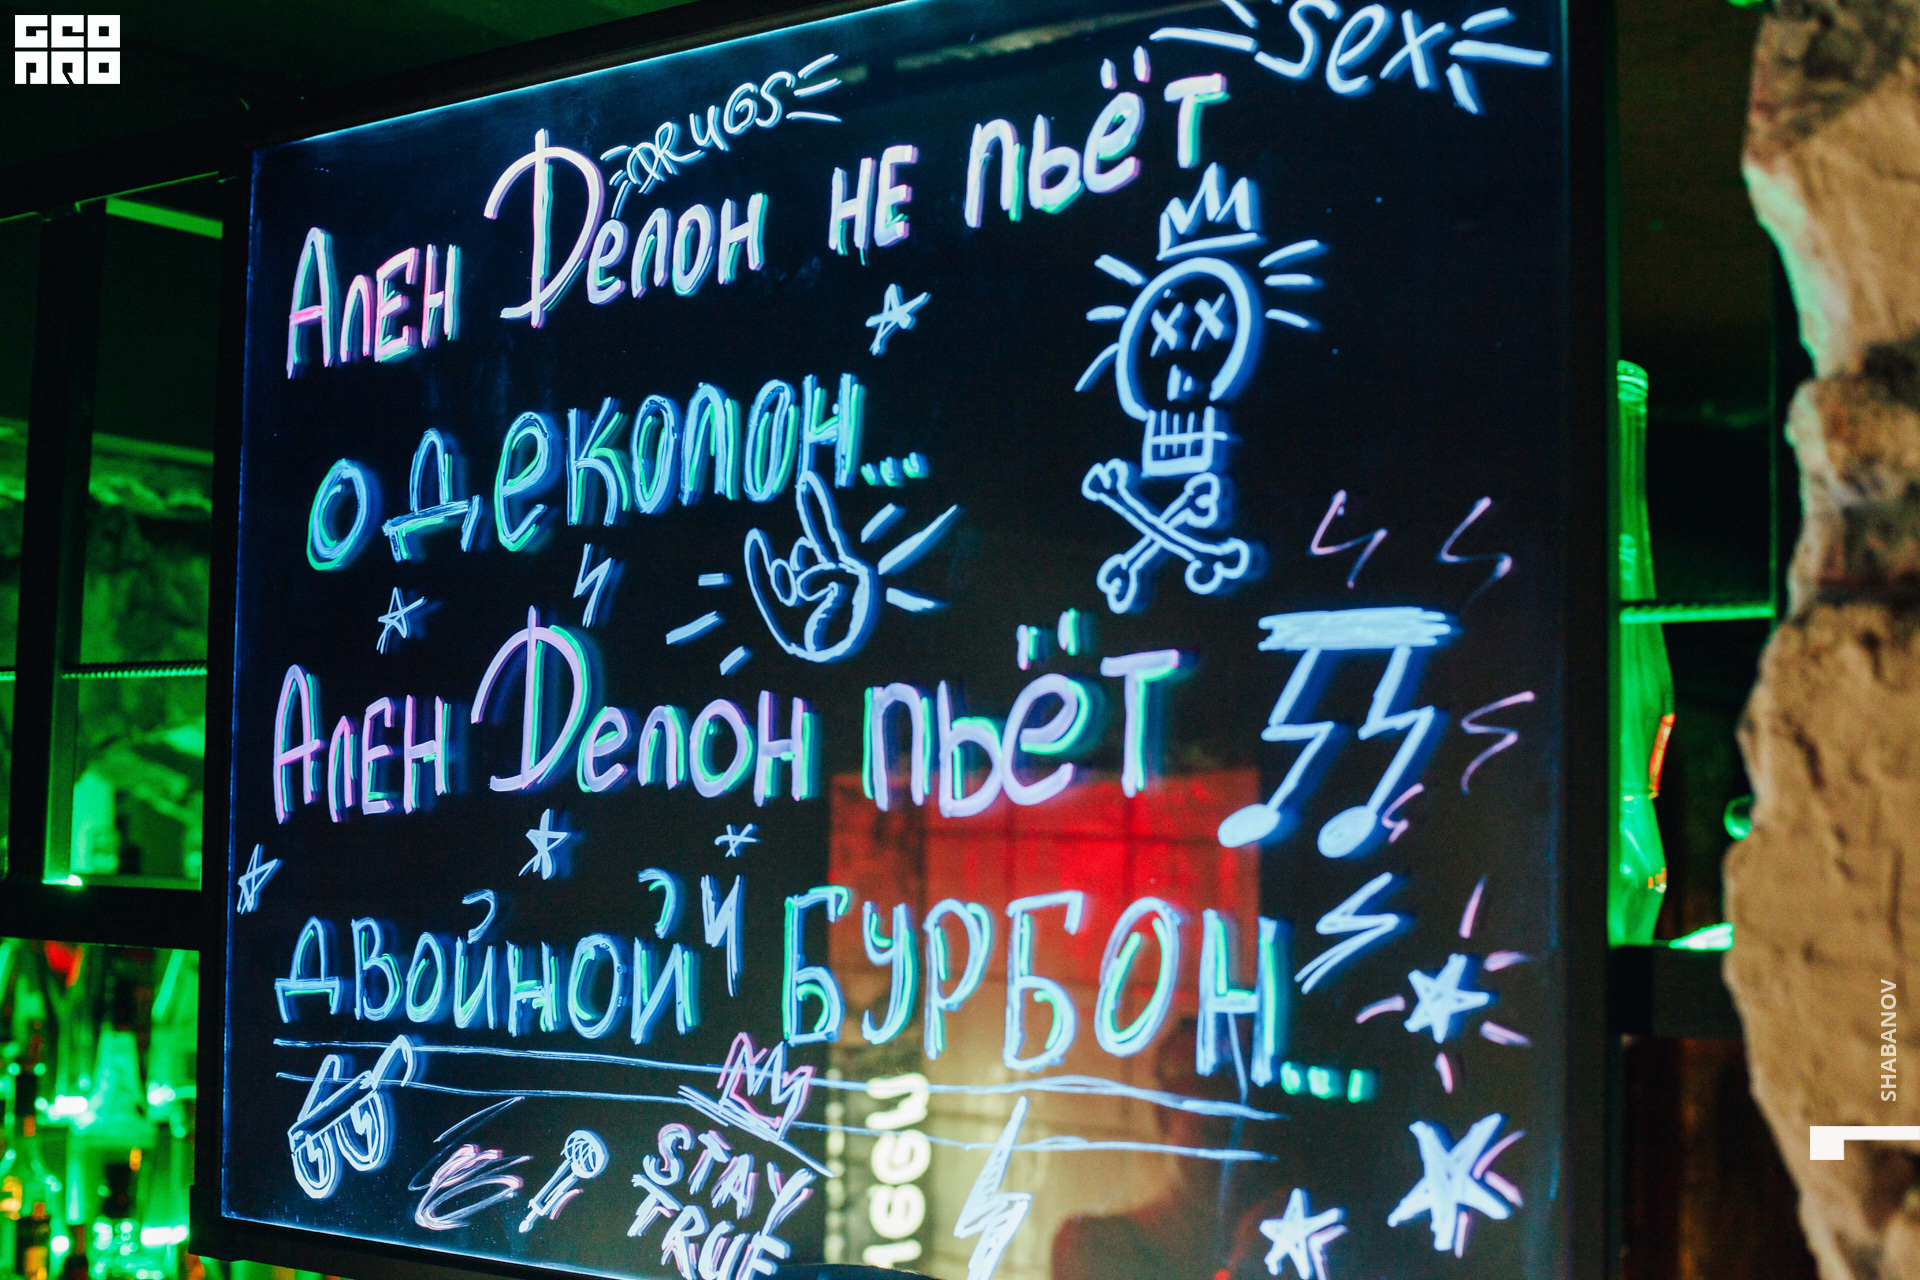 GEO
PRO
sex
DRUGS
Ален Делон не пьёт
одеколон...
Ален Делон пьёт
двойной Бурбон...
STAY
TRUE
SHABANOV